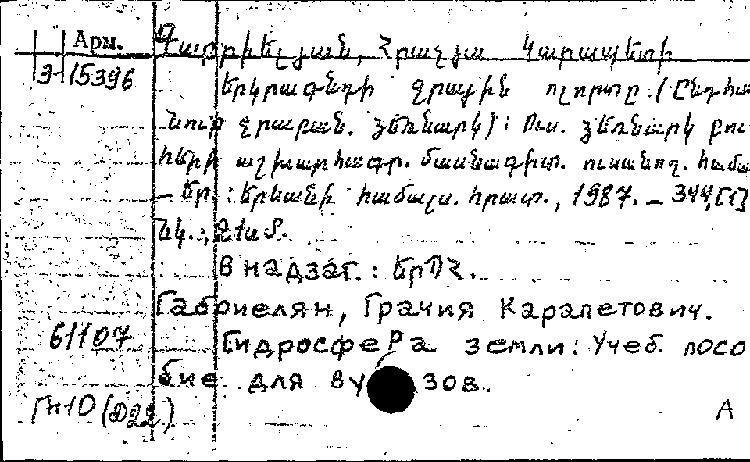 Арм.
Գաբրիելյան, Հրաչյա Կարապետի
Э-15396
Երկրագնդի ջրային ոլորտը. (Ընդհա
նուր ջրաբան. ձեռնարկ): Ուս. ձեռնարկ բու
հերի աշխարհագր. մասնագիտ. ուսանող. համա
– Եր.: Երևանի համալս. հրատ., 1987. – 344, [1]
նկ.; 21 սմ.
В надзаг.: ԵրՊՀ.
Габриелян, Грачия Карапетович.
61107
Гидросфера земли: Учеб. посо
бие для вузов.
Гн10 (Д22)
А